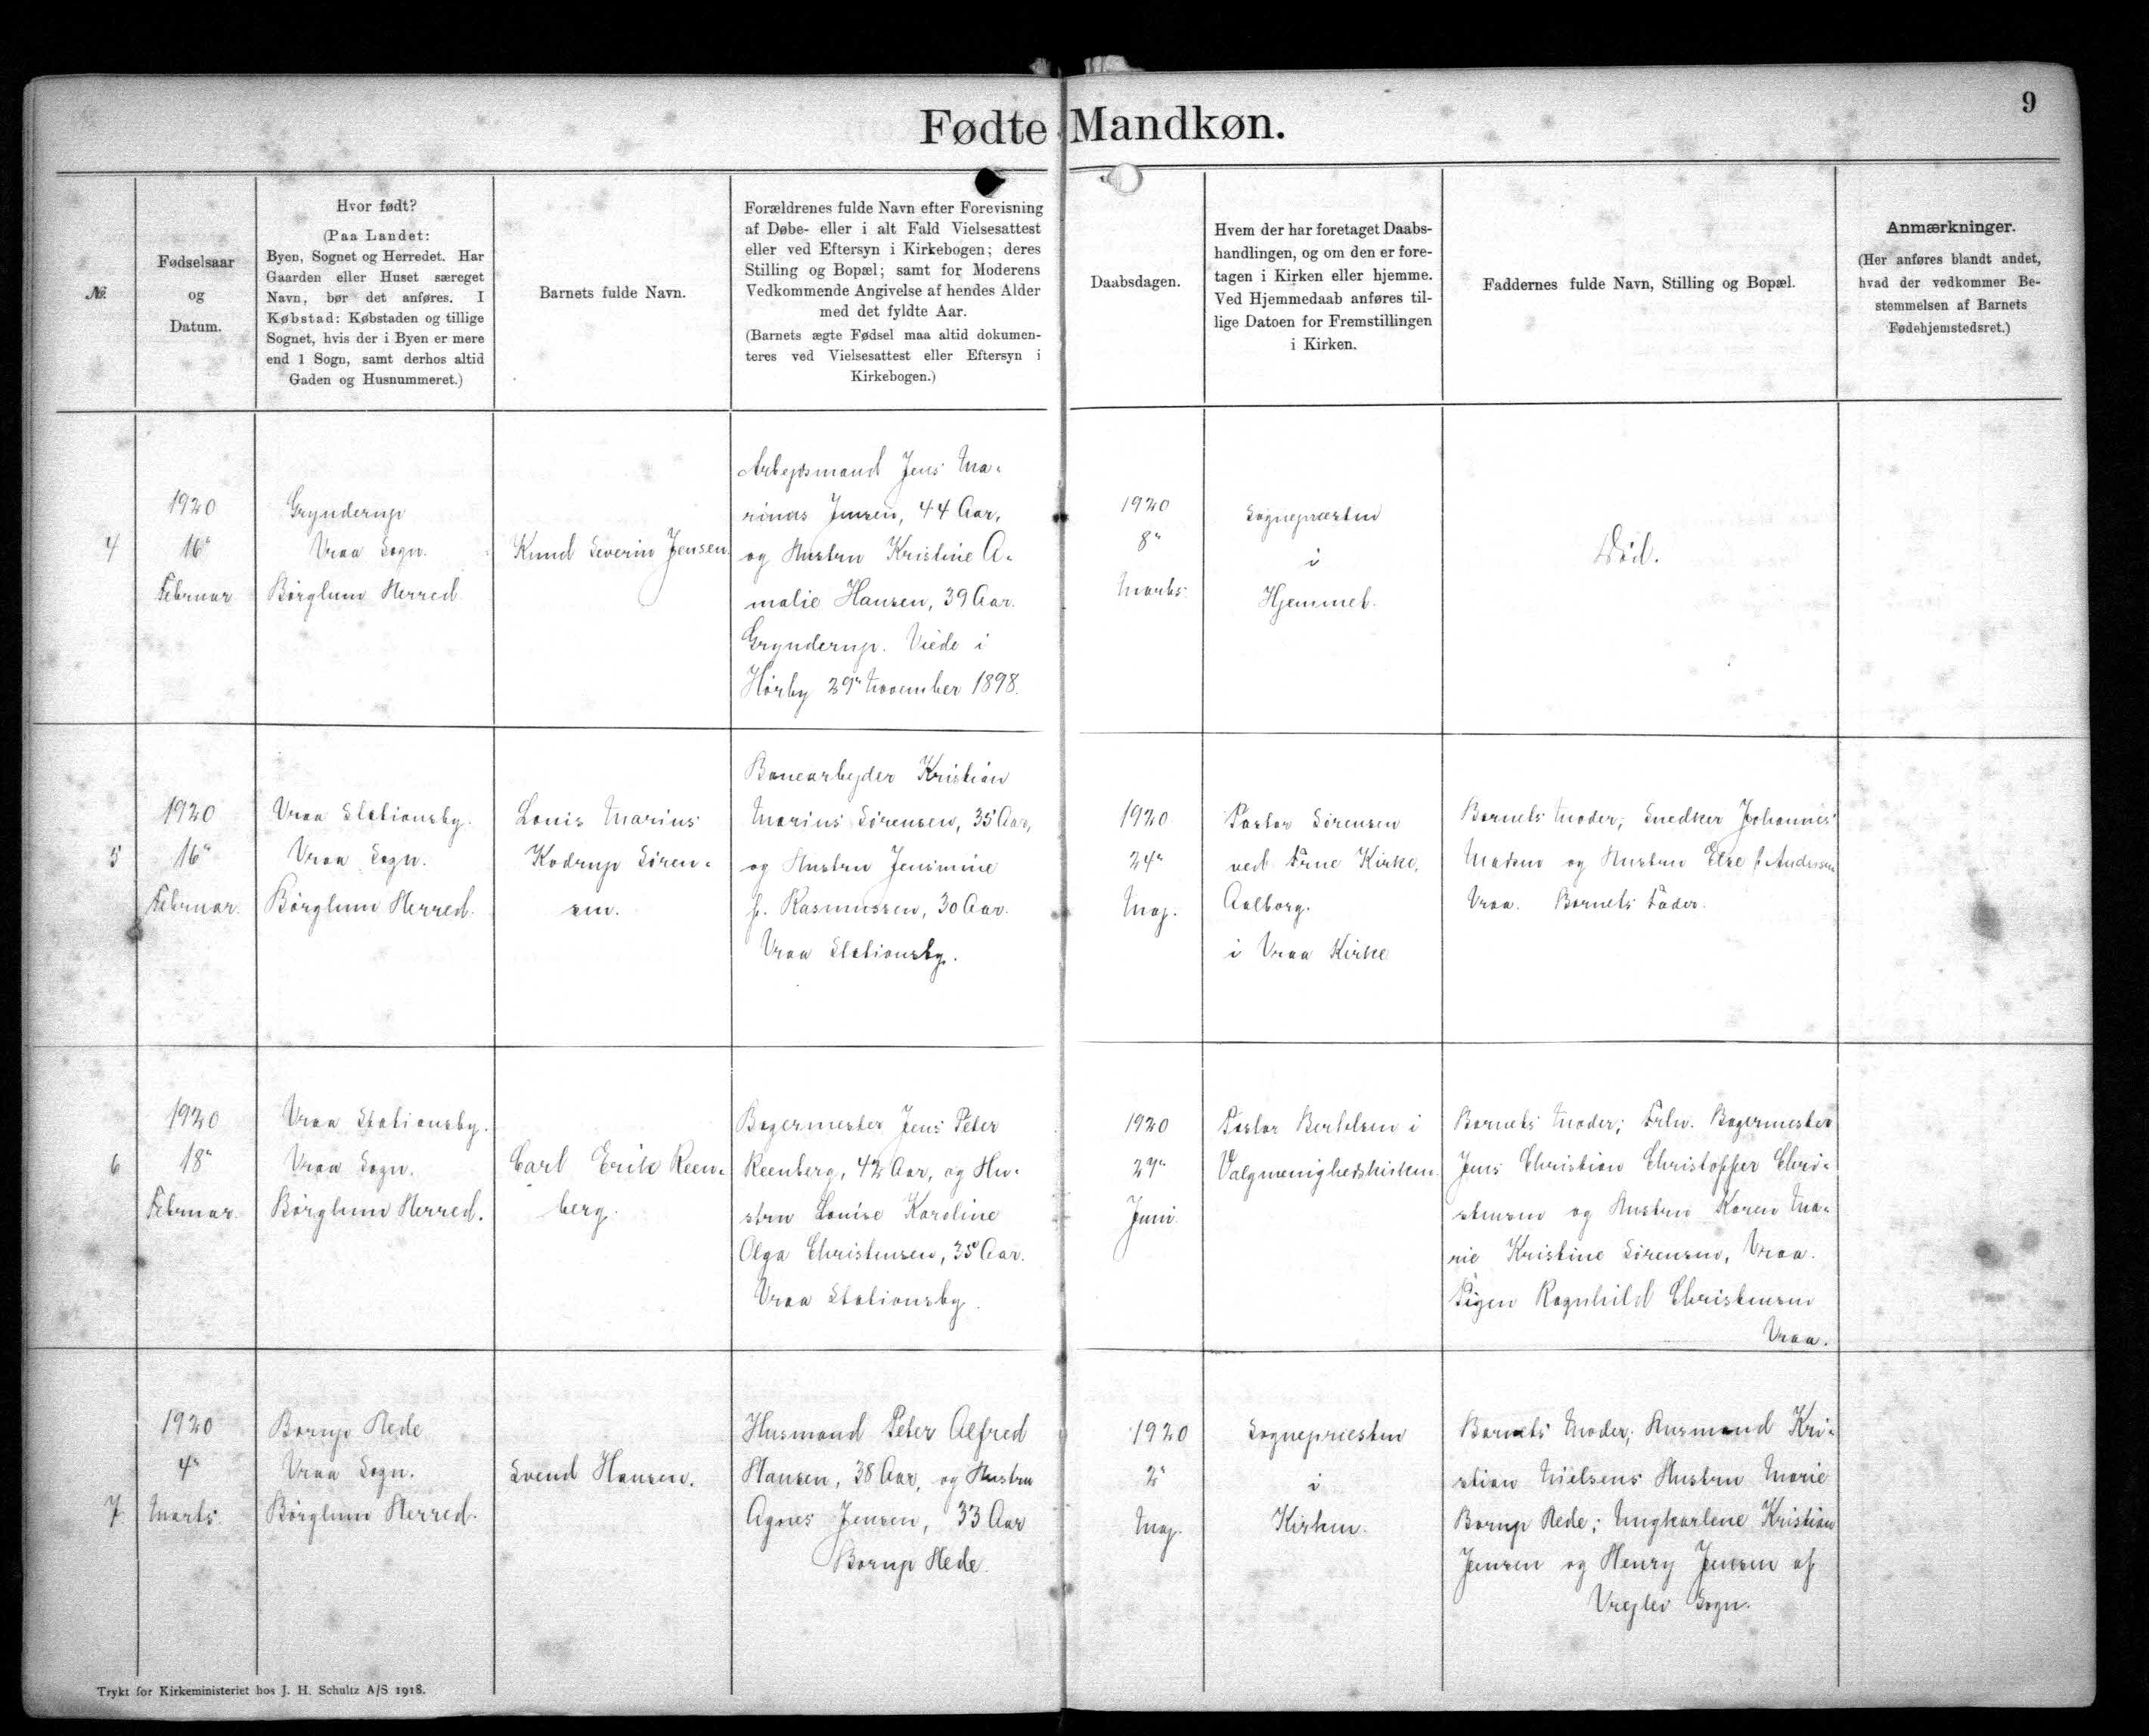 Fødte Mandkøn.
9
№
Fødselsaar
og
Datum.
Hvor født?
(Paa Landet:
Byen, Sognet og Herredet. Har
Gaarden eller Huset særeget
Navn, bør det anføres. I
Købstad: Købstaden og tillige
Sognet, hvis der i Byen er mere
end 1 Sogn, samt derhos altid
Gaden og Husnummeret.)
Barnets fulde Navn.
Forældrenes fulde Navn efter Forevisning
af Døbe- eller i alt Fald Vielsesattest
eller ved Eftersyn i Kirkebogen; deres
Stilling og Bopæl; samt for Moderens
Vedkommende Angivelse af hendes Alder
med det fyldte Aar.
(Barnets ægte Fødsel maa altid dokumen-
teres ved Vielsesattest eller Eftersyn i
Kirkebogen.)
Daabsdagen.
Hvem der har foretaget Daabs-
handlingen, og om den er fore-
tagen i Kirken eller hjemme.
Ved Hjemmedaab anføres til-
lige Datoen for Fremstillingen
i Kirken.
Faddernes fulde Navn, Stilling og Bopæl.
Anmærkninger.
(Her anføres blandt andet,
hvad der vedkommer Be-
stemmelsen af Barnets
Fødehjemstedsret.)
4
1920
16"
Februar
Grynderup
Vraa Sogn.
Børglum Herred
Knud Severin Jensen.
Arbejdsmand Jens Ma-
rinus Jensen, 44 Aar,
og Hustru Kristine A-
malie Hansen, 39 Aar.
Grynderup. Viede i
Hørby 29" November 1898.
1920
8"
Marts.
Sognepræsten
i
Hjemmet.
Død.
5
1920
16"
Februar.
Vraa Stationsby.
Vraa Sogn.
Børglum Herred.
Louis Marius
Kodrup Søren-
sen.
Banearbejder Kristian
Marius Sørensen, 35 Aar,
og Hustru Jensmine
f. Rasmussen, 30 Aar.
Vraa Stationsby.
1920
24"
Maj.
Pastor Sørensen
ved Frue Kirke,
Aalborg.
i Vraa Kirke
Barnets Moder, Snedker Johannes
Madsen og Hustru Else f. Andersen
Vraa. Barnets Fader.
6
1920
18"
Februar.
Vraa Stationsby.
Vraa Sogn.
Børglum Herred.
Carl Erik Reen-
berg.
Bagermester Jens Peter
Reenberg, 42 Aar, og Hu-
stru Louise Karoline
Olga Christensen, 35 Aar.
Vraa Stationsby.
1920
27"
Juni.
Pastor Bertelsen i
Valgmenighedskirken.
Barnets Moder; Frhv. Bagermester
Jens Christian Christoffer Chri-
stensen og Hustru Karen Ma-
rie Kristine Sørensen, Vraa.
Pigen Ragnhild Christensen
Vraa.
7
1920
4"
Marts.
Borup Hede
Vraa Sogn.
Børglum Herred.
Svend Hansen.
Husmand Peter Alfred
Hansen, 38 Aar, og Hustru
Agnes Jensen, 33 Aar
Borup Hede.
1920
2"
Maj.
Sognepræsten
i
Kirken.
Barnets Moder; Husmand Kri-
stian Nielsens Hustru Marie
Borup Hede; Ungkarlene Kristian
Jensen og Henry Jensen af
Vrejlev Sogn.
Trykt for Kirkeministeriet hos J. H. Schultz A/S 1918.